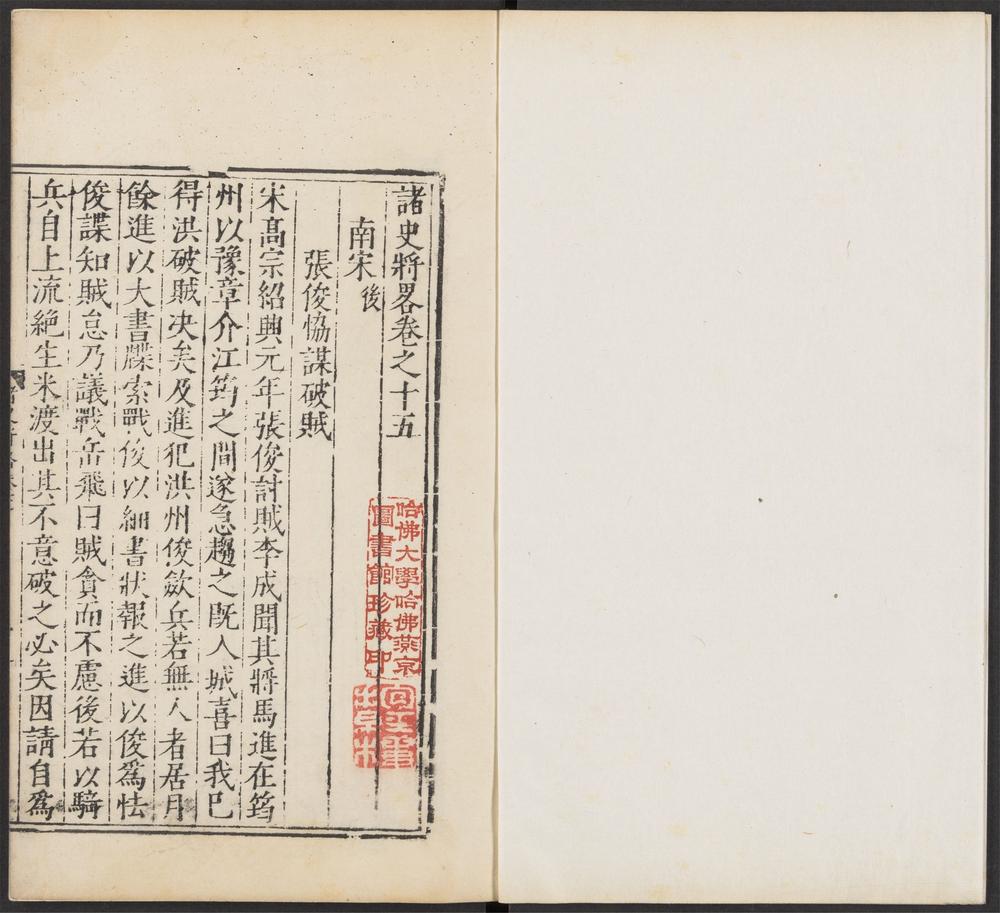 諸史將畧卷之十五
南宋後
張俊恊謀破賊
宋高宗紹興元年張俊討賊李成聞其將馬進在筠
州以豫章介江筠之間遂急趨之既入城喜曰我已
得洪破賊决矣及進犯洪州俊斂兵若無人者居月
餘進以大書牒索戰俊以細書狀報之進以俊爲怯
俊諜知賊怠乃議戰岳飛曰賊貪而不慮後若以騎
兵自上流絶生米渡出其不意破之必矣因請自爲
哈佛大學哈佛燕京
圖書館珍藏印